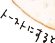 トーストにすると